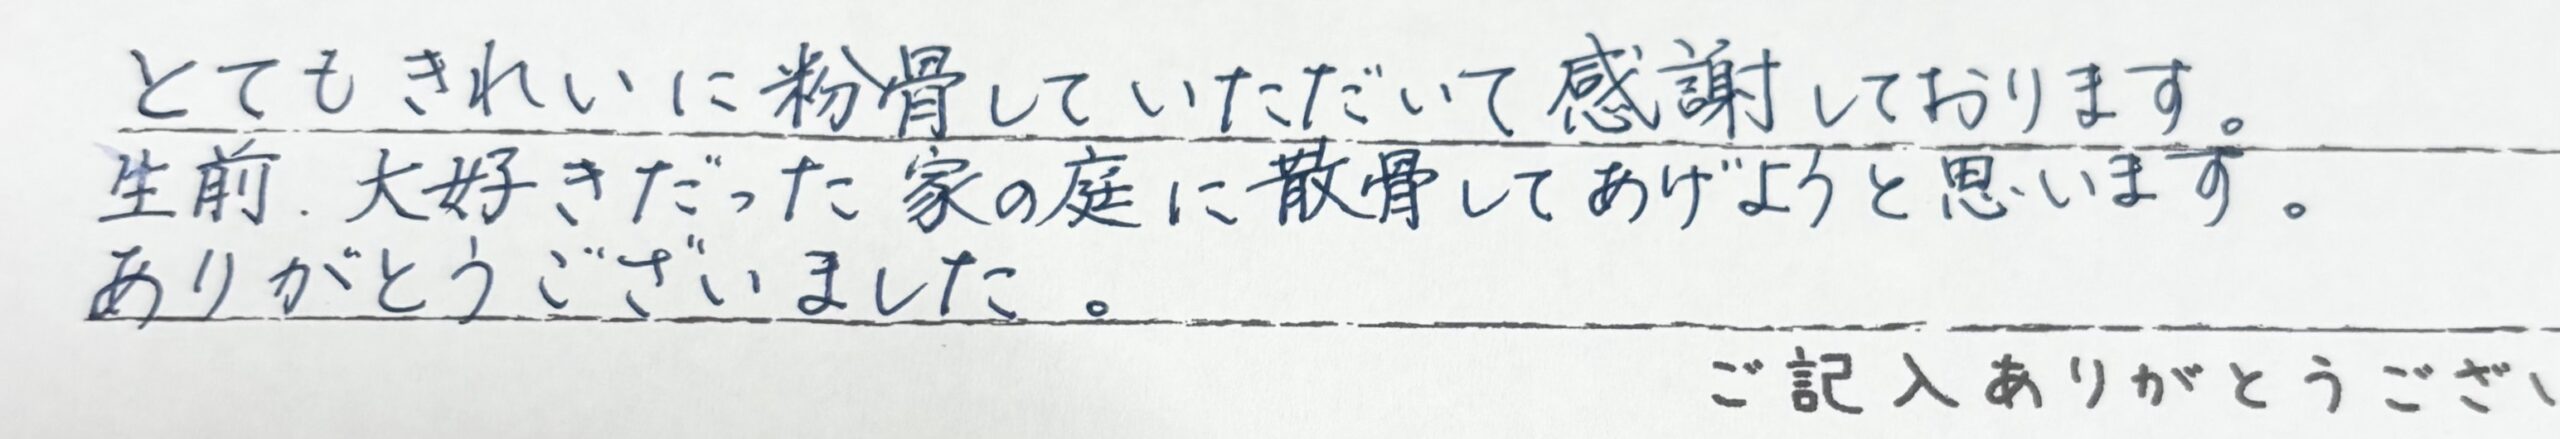 とてもきれいに粉骨していただいて感謝しております。
生前、大好きだった家の庭に散骨してあげようと思います。
ありがとうございました。
ご記入ありがとうござい